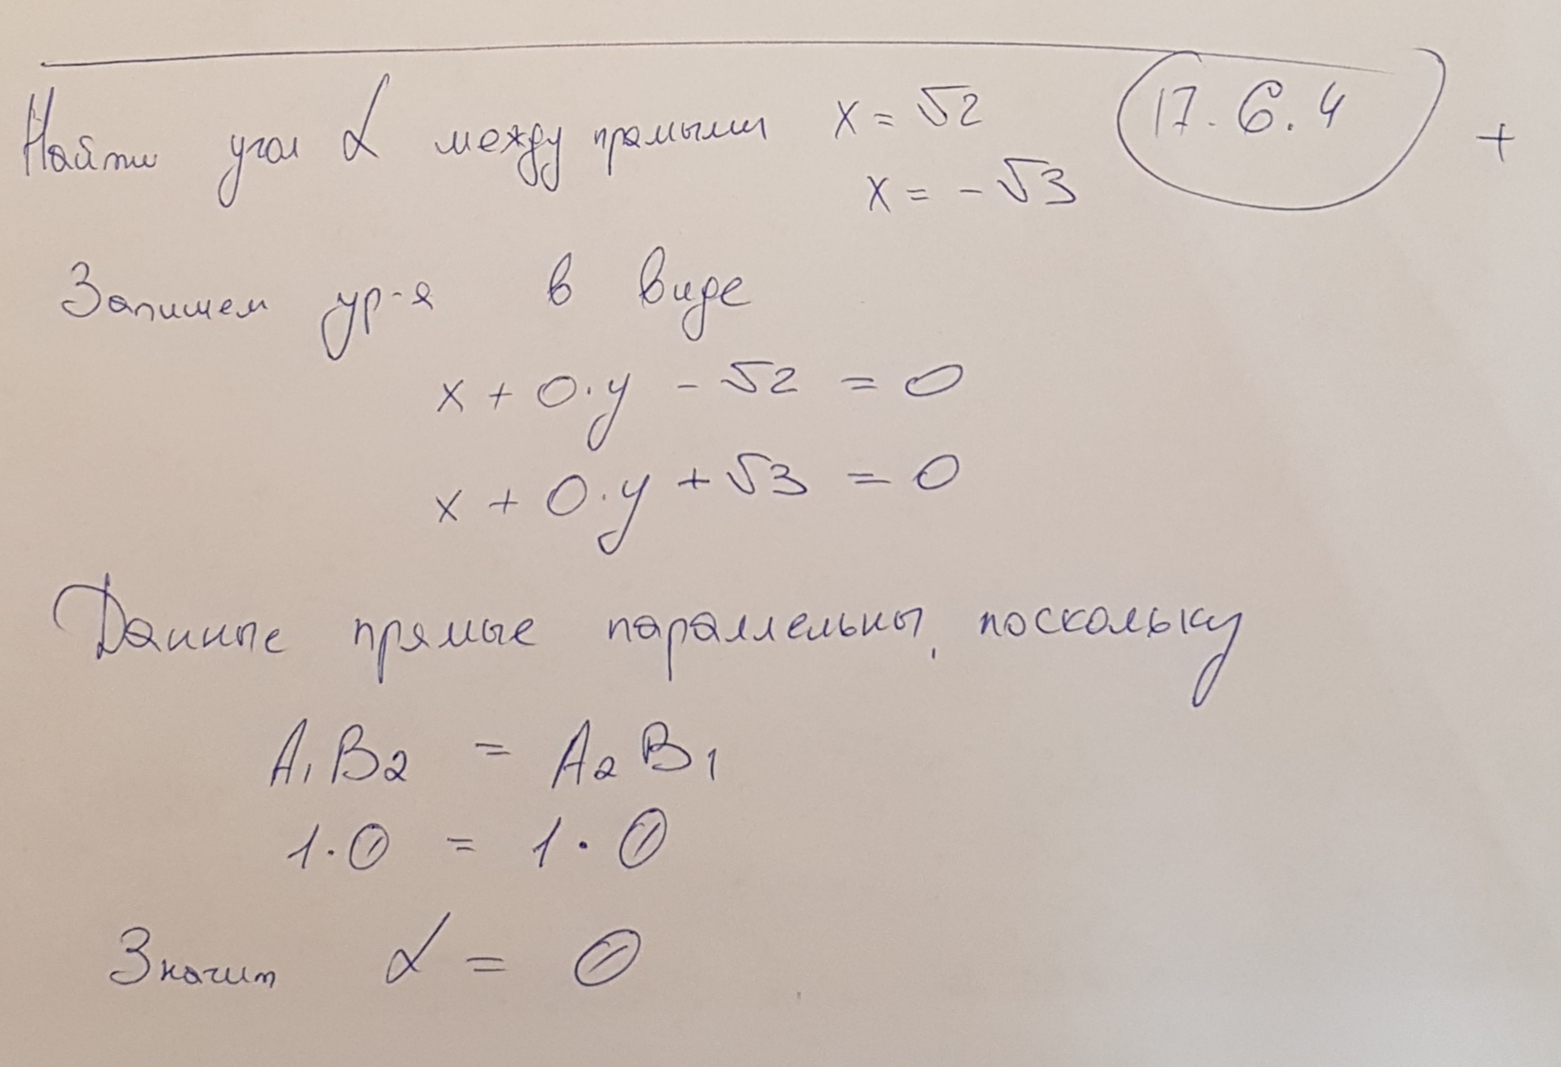 Найти угол α между прямыми x = √2 17.6.4 +
x = -√3
Запишем ур-я в виде
x + 0·y - √2 = 0
x + 0·y + √3 = 0
Данные прямые параллельны, поскольку
A₁B₂ = A₂B₁
1·0 = 1·0
Значит α = 0